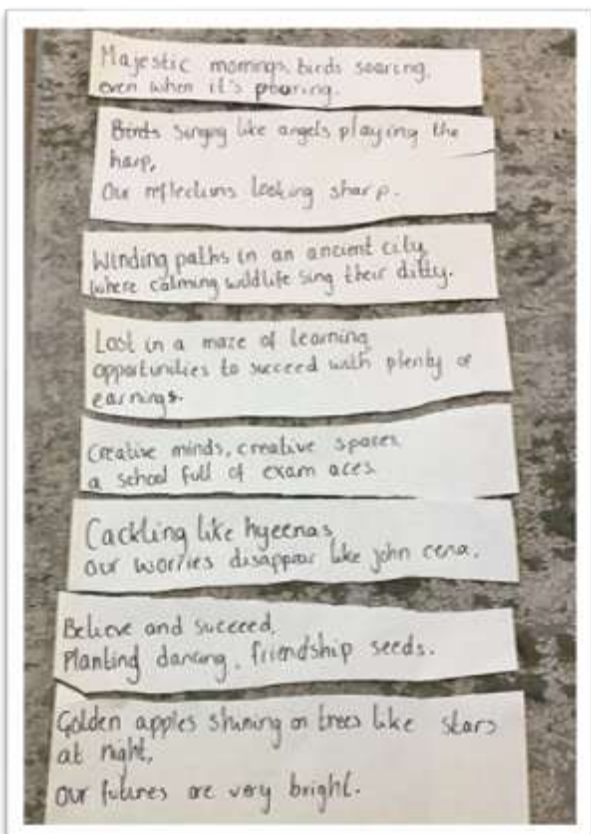 Majestic mornings, birds soaring,
even when it's pouring.
Birds singing like angels playing the
harp,
Our reflections looking sharp.
Winding paths in an ancient city
where calming wildlife sing their ditty.
Lost in a maze of learning
opportunities to succeed with plenty of
earnings.
Creative minds, creative spaces
a school full of exam aces
Cackling like hyeenas
our worries disappear like john cena.
Believe and succeed,
Planting dancing, friendship seeds.
Golden apples shining on trees like stars
at night,
our futures are very bright.